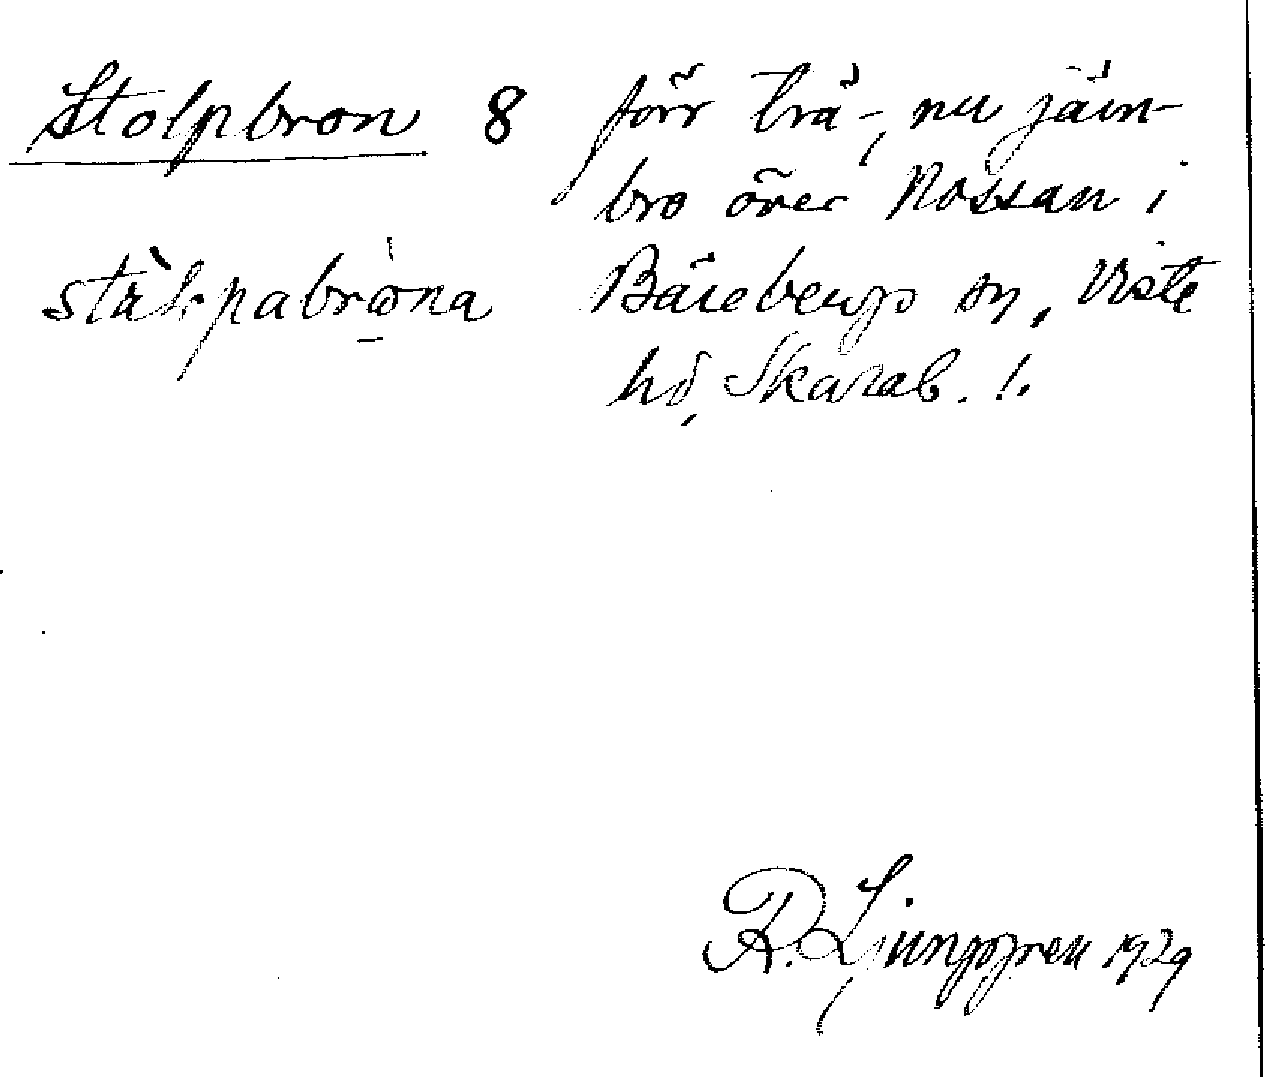 Stolpbron 8 förr trä-, nu järn-
bro över Nossan i
Bärebergs sn, Viste
hd, Skarab. l.
R. Ljunggren 1929